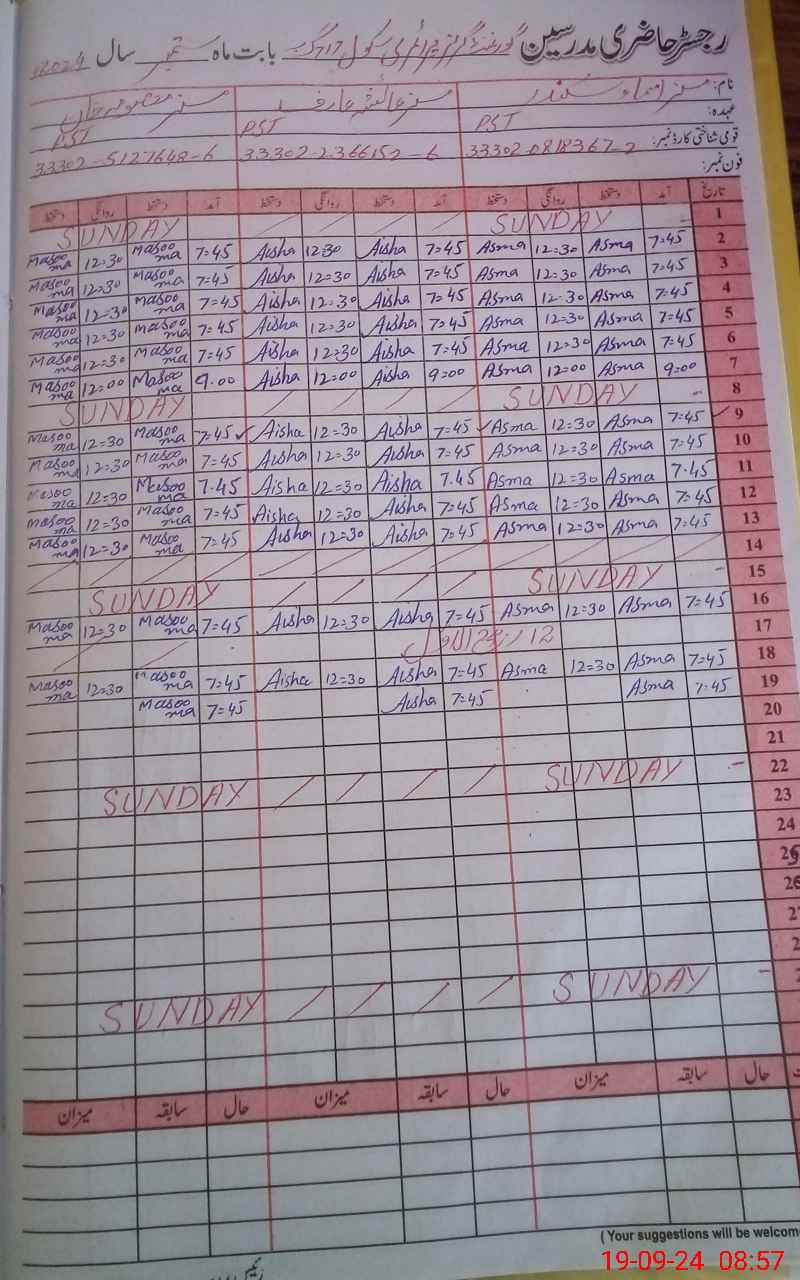 رجسٹر حاضری مدرسین گورنمنٹ گرلز پرائمری سکول 717 گ ب بابت ماہ ستمبر سال 2024
نام: مسز اسماء سکندر مسز عائشہ عارف مسز معصومہ خان
عہدہ: PST PST PST
قومی شناختی کارڈ نمبر: 33302-0818367-2 33302-2366152-6 33302-5127648-6
فون نمبر:
تاریخ آمد دستخط روانگی دستخط آمد دستخط روانگی دستخط آمد دستخط روانگی دستخط
SUNDAY / / / / SUNDAY - 1
Masooma 12=30 Masooma 7=45 Aisha 12=30 Aisha 7=45 Asma 12=30 Asma 7=45 2
Masooma 12=30 Masooma 7=45 Aisha 12=30 Aisha 7=45 Asma 12=30 Asma 7=45 3
Masooma 12=30 Masooma 7=45 Aisha 12=30 Aisha 7=45 Asma 12=30 Asma 7=45 4
Masooma 12=30 Masooma 7=45 Aisha 12=30 Aisha 7=45 Asma 12=30 Asma 7=45 5
Masooma 12=30 Masooma 7=45 Aisha 12=30 Aisha 7=45 Asma 12=30 Asma 7=45 6
Masooma 12=00 Masooma 9.00 Aisha 12=00 Aisha 9=00 Asma 12=00 Asma 9=00 7
SUNDAY / / / / SUNDAY - 8
Masooma 12=30 Masooma 7=45 Aisha 12=30 Aisha 7=45 Asma 12=30 Asma 7=45 9
Masooma 12=30 Masooma 7=45 Aisha 12=30 Aisha 7=45 Asma 12=30 Asma 7=45 10
Masooma 12=30 Masooma 7.45 Aisha 12=30 Aisha 7.45 Asma 12=30 Asma 7.45 11
Masooma 12=30 Masooma 7=45 Aisha 12=30 Aisha 7=45 Asma 12=30 Asma 7=45 12
Masooma 12=30 Masooma 7=45 Aisha 12=30 Aisha 7=45 Asma 12=30 Asma 7=45 13
14
SUNDAY / / / / SUNDAY - 15
Masooma 12=30 Masooma 7=45 Aisha 12=30 Aisha 7=45 Asma 12=30 Asma 7=45 16
12 ربیع الاول 17
Masooma 12=30 Masooma 7=45 Aisha 12=30 Aisha 7=45 Asma 12=30 Asma 7=45 18
Masooma 7=45 Aisha 7=45 Asma 7=45 19
20
21
SUNDAY / / / / SUNDAY - 22
23
24
25
26
SUNDAY / / / / SUNDAY -
حال سابقہ میزان حال سابقہ میزان حال سابقہ میزان
(Your suggestions will be welcom
19-09-24 08:57